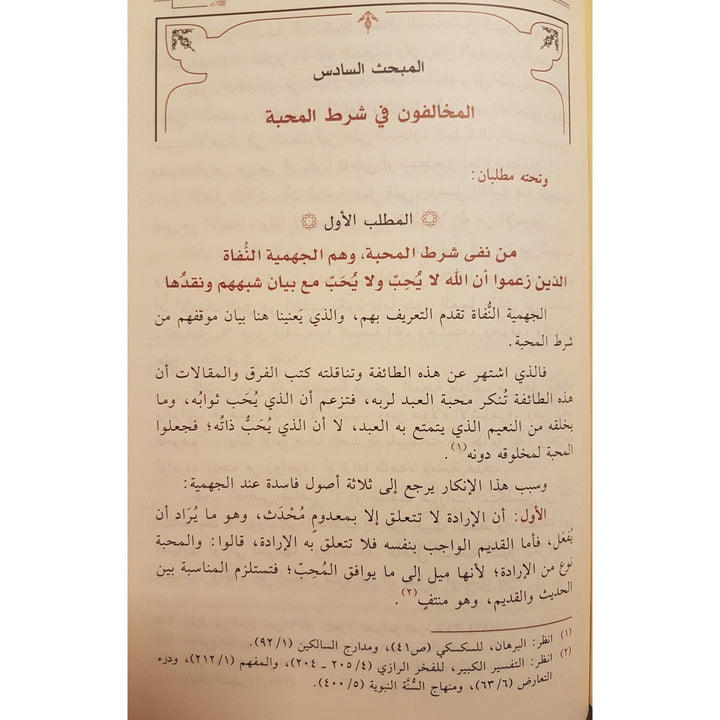 المبحث السادس
المخالفون في شرط المحبة
وتحته مطلبان:
المطلب الأول
من نفى شرط المحبة، وهم الجهمية النُّفاة
الذين زعموا أن الله لا يُحِبّ ولا يُحَبّ مع بيان شبههم ونقدُها
الجهمية النُّفاة تقدم التعريف بهم، والذي يَعنينا هنا بيان موقفهم من
شرط المحبة.
فالذي اشتهر عن هذه الطائفة وتناقلته كتب الفرق والمقالات أن
هذه الطائفة تُنكر محبة العبد لربه، فتزعم أن الذي يُحَب ثوابُه، وما
يخلقه من النعيم الذي يتمتع به العبد، لا أن الذي يُحَبُّ ذاتُه؛ فجعلوا
المحبة لمخلوقه دونه(١).
وسبب هذا الإنكار يرجع إلى ثلاثة أصول فاسدة عند الجهمية:
الأول: أن الإرادة لا تتعلق إلا بمعدومٍ مُحْدَث، وهو ما يُرَاد أن
يُفعَل، فأما القديم الواجب بنفسه فلا تتعلق به الإرادة، قالوا: والمحبة
نوع من الإرادة؛ لأنها ميل إلى ما يوافق المُحِبّ؛ فتستلزم المناسبة بين
الحديث والقديم، وهو منتفٍ(٢).
(١) انظر: البرهان، للسكسكي (ص٤١)، ومدارج السالكين (٩٢/١).
(٢) انظر: التفسير الكبير، للفخر الرازي (٢٠٥/٤ ـ ٢٠٤)، والمفهم (٢١٢/١)، ودرء
التعارض (٦٣/٦)، ومنهاج السُّنَّة النبوية (٤٠٠/٥).